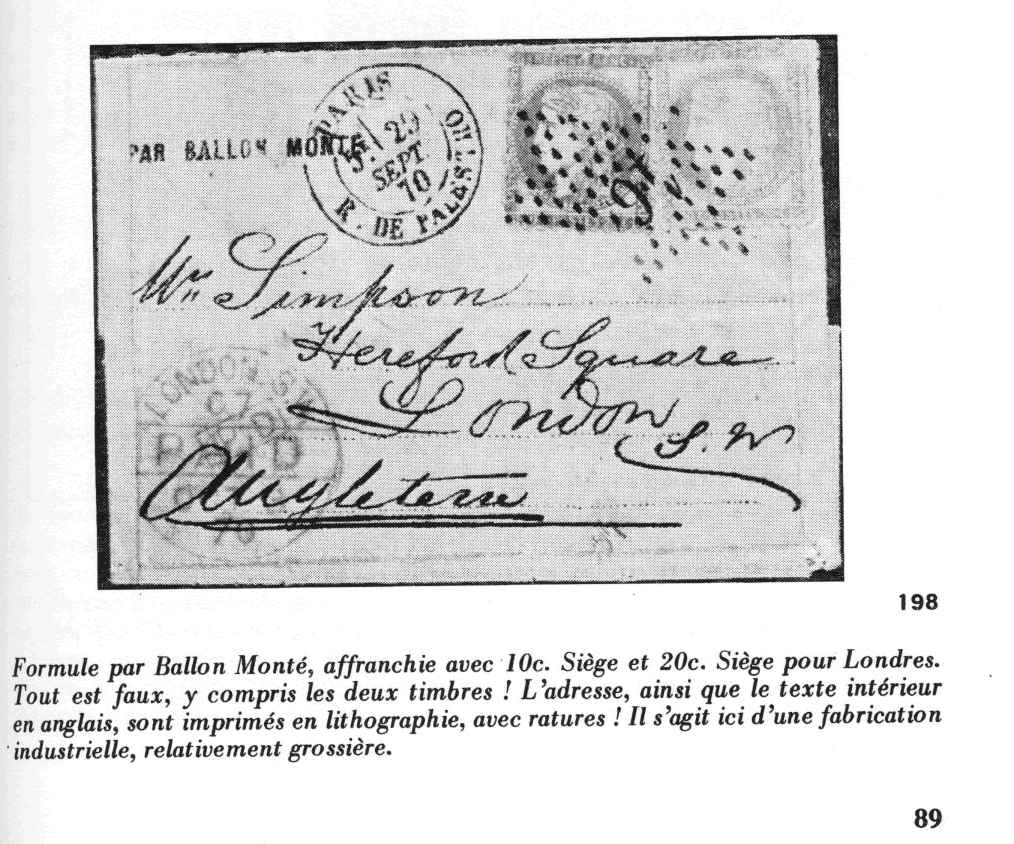 PAR BALLON MONTÉ
PARIS
29
SEPT
70
R. DE
Simpson
Hereford Square
London
S.W
Angleterre
LONDON S.W
PAID
70
198
Formule par Ballon Monté, affranchie avec 10c. Siège et 20c. Siège pour Londres.
Tout est faux, y compris les deux timbres ! L'adresse, ainsi que le texte intérieur
en anglais, sont imprimés en lithographie, avec ratures ! Il s'agit ici d'une fabrication
industrielle, relativement grossière.
89